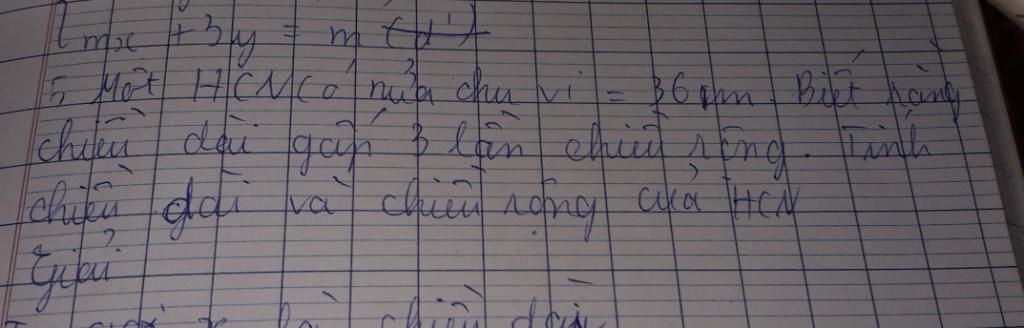 { mx + 3y = m (d')
5, Một HCN có nửa chu vi = 36 cm. Biết rằng
chiều dài gấp 3 lần chiều rộng. Tính
chiều dài và chiều rộng của HCN
Giải
là chiều dài